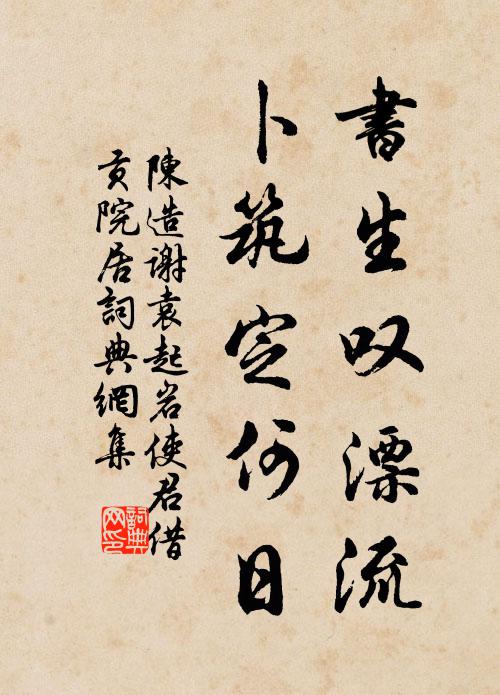 書生叹漂流
卜筑定何日
陳造谢袁起岩使君借
贡院居詞典網集
詞典
网印